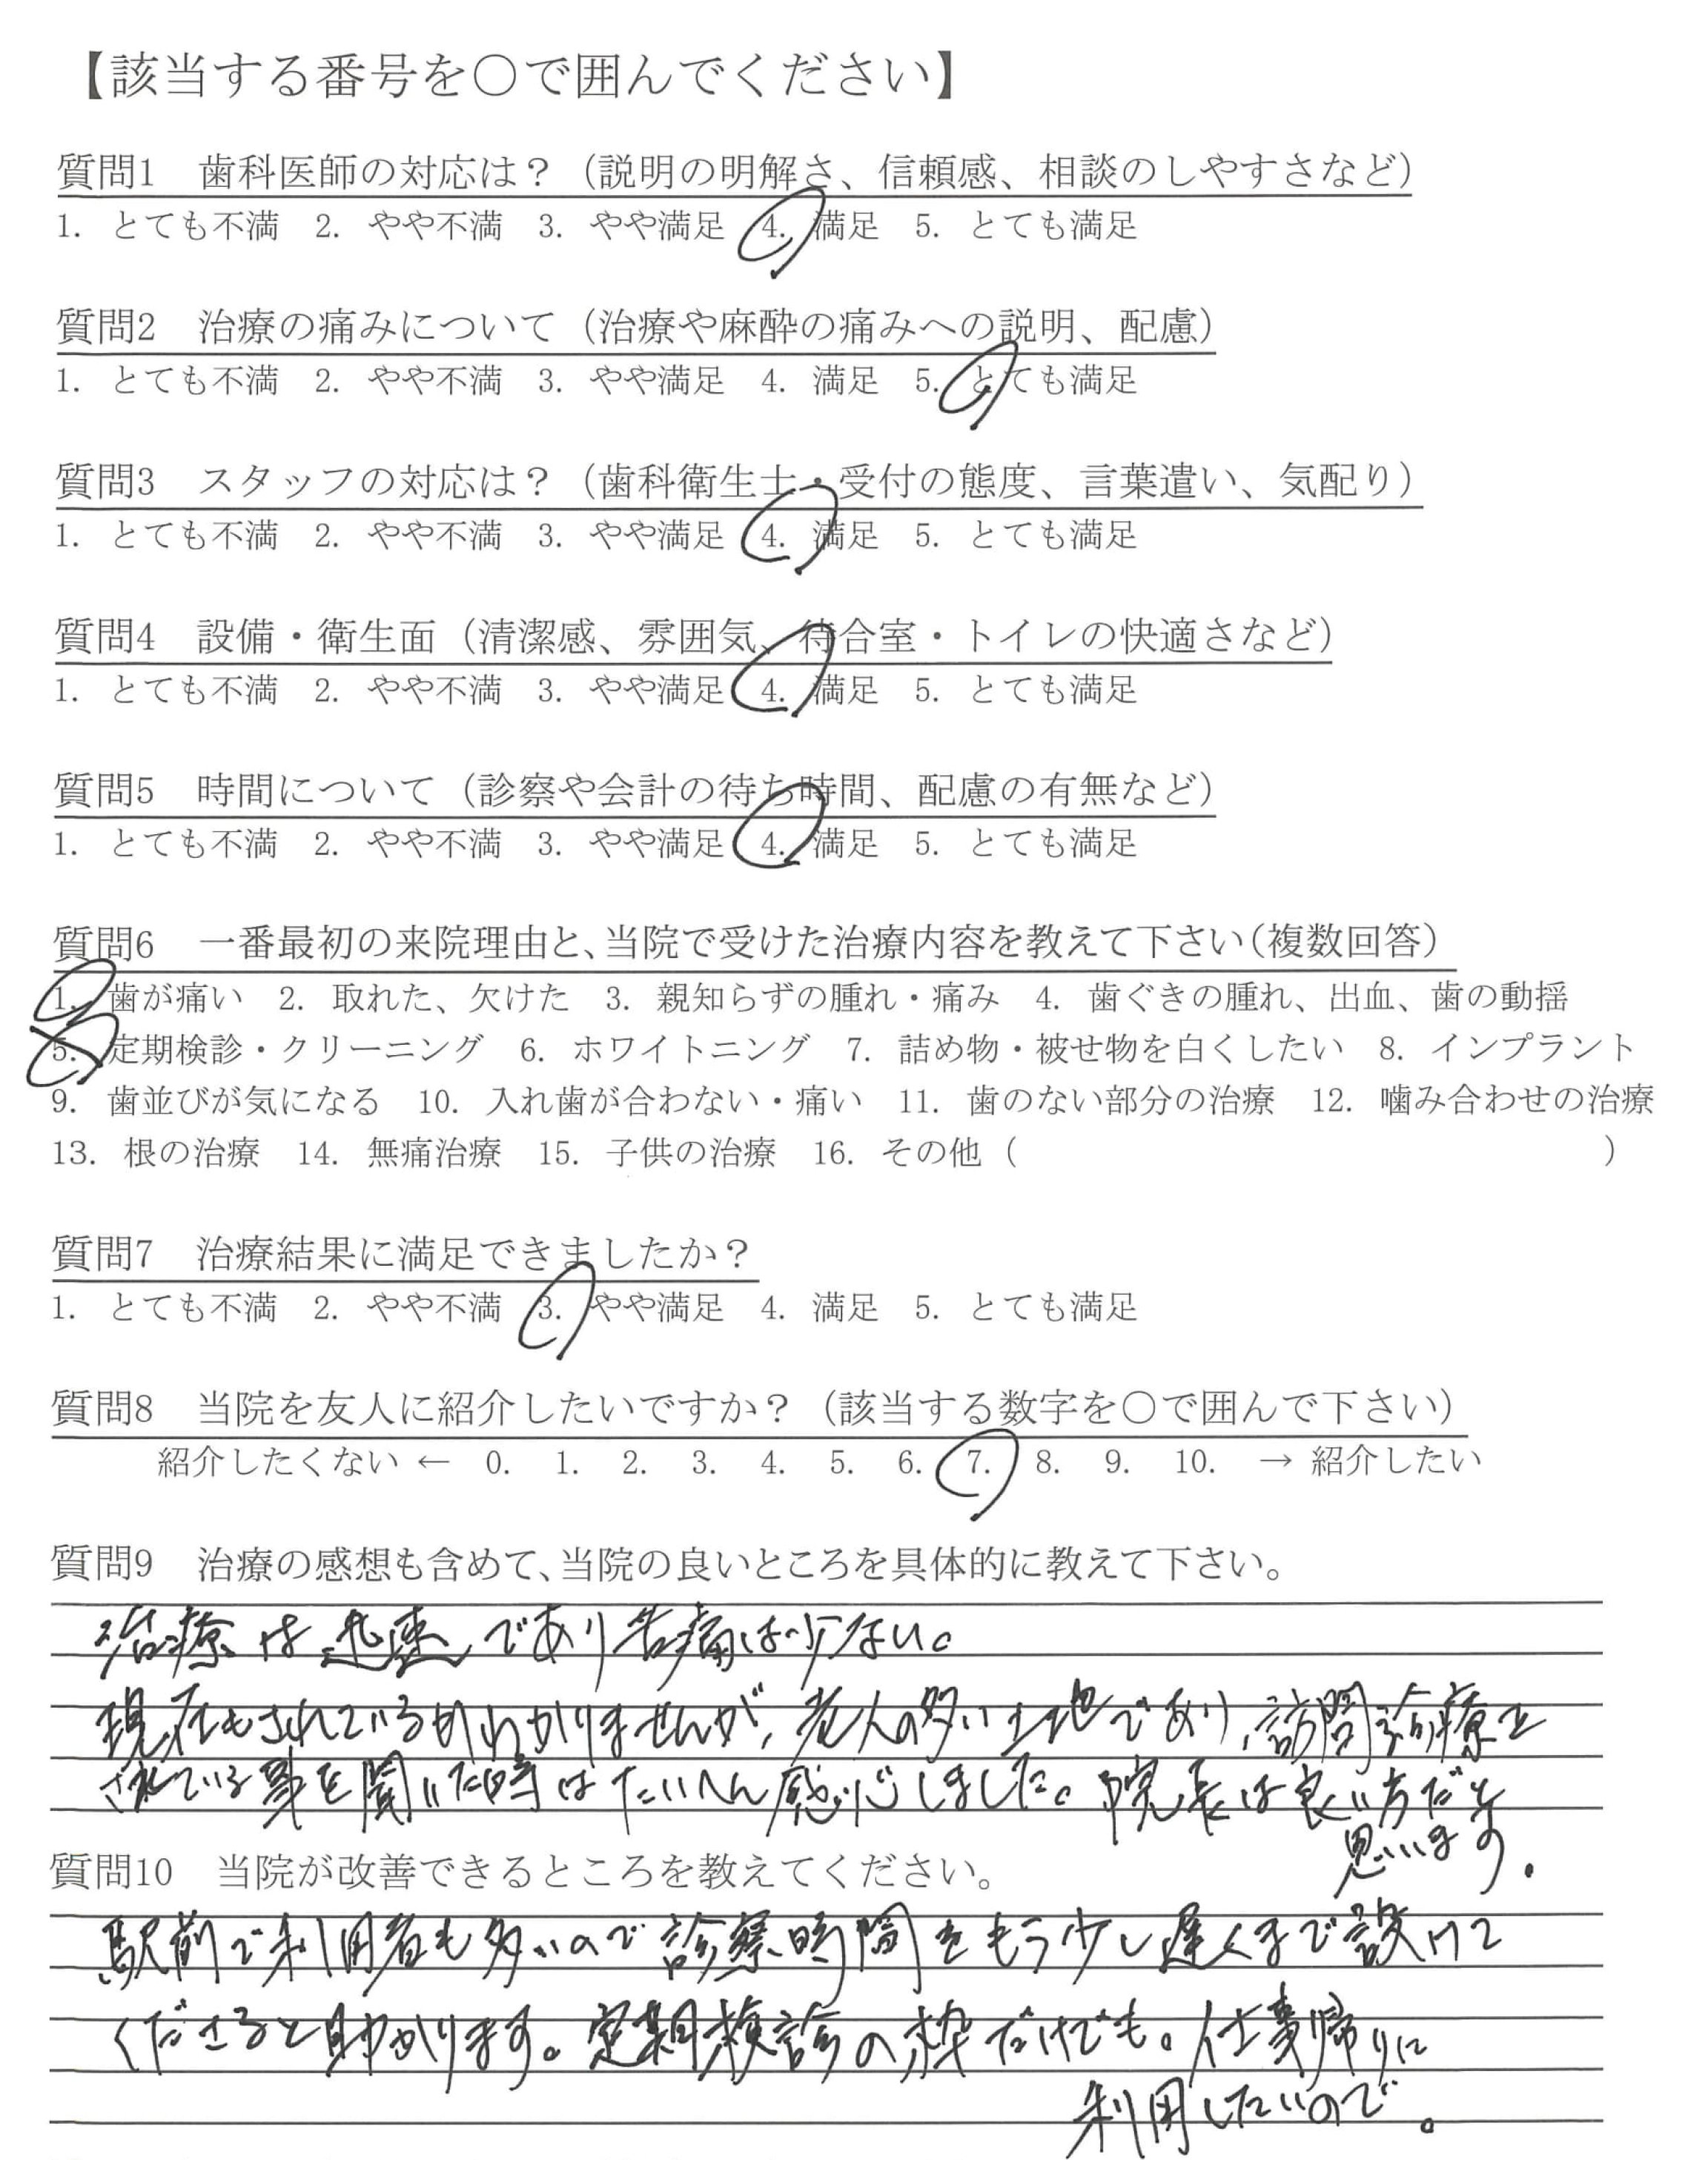 【該当する番号を○で囲んでください】
質問1　歯科医師の対応は？（説明の明解さ、信頼感、相談のしやすさなど）
1. とても不満　2. やや不満　3. やや満足　4. 満足　5. とても満足
質問2　治療の痛みについて（治療や麻酔の痛みへの説明、配慮）
1. とても不満　2. やや不満　3. やや満足　4. 満足　5. とても満足
質問3　スタッフの対応は？（歯科衛生士・受付の態度、言葉遣い、気配り）
1. とても不満　2. やや不満　3. やや満足　4. 満足　5. とても満足
質問4　設備・衛生面（清潔感、雰囲気、待合室・トイレの快適さなど）
1. とても不満　2. やや不満　3. やや満足　4. 満足　5. とても満足
質問5　時間について（診察や会計の待ち時間、配慮の有無など）
1. とても不満　2. やや不満　3. やや満足　4. 満足　5. とても満足
質問6　一番最初の来院理由と、当院で受けた治療内容を教えて下さい（複数回答）
1. 歯が痛い　2. 取れた、欠けた　3. 親知らずの腫れ・痛み　4. 歯ぐきの腫れ、出血、歯の動揺
5. 定期検診・クリーニング　6. ホワイトニング　7. 詰め物・被せ物を白くしたい　8. インプラント
9. 歯並びが気になる　10. 入れ歯が合わない・痛い　11. 歯のない部分の治療　12. 噛み合わせの治療
13. 根の治療　14. 無痛治療　15. 子供の治療　16. その他（　　　　　　　　　　）
質問7　治療結果に満足できましたか？
1. とても不満　2. やや不満　3. やや満足　4. 満足　5. とても満足
質問8　当院を友人に紹介したいですか？（該当する数字を○で囲んで下さい）
紹介したくない ← 0. 1. 2. 3. 4. 5. 6. 7. 8. 9. 10. → 紹介したい
質問9　治療の感想も含めて、当院の良いところを具体的に教えて下さい。
治療は迅速であり苦痛は少ない。
現在もされているかわかりませんが、老人の多い土地であり、訪問診療を
されている事を聞いた時はたいへん感心しました。院長は良い方だと
思います。
質問10　当院が改善できるところを教えてください。
駅前で利用者も多いので診察時間をもう少し遅くまで設けて
くださると助かります。定期検診の枠だけでも。仕事帰りに
利用したいので。